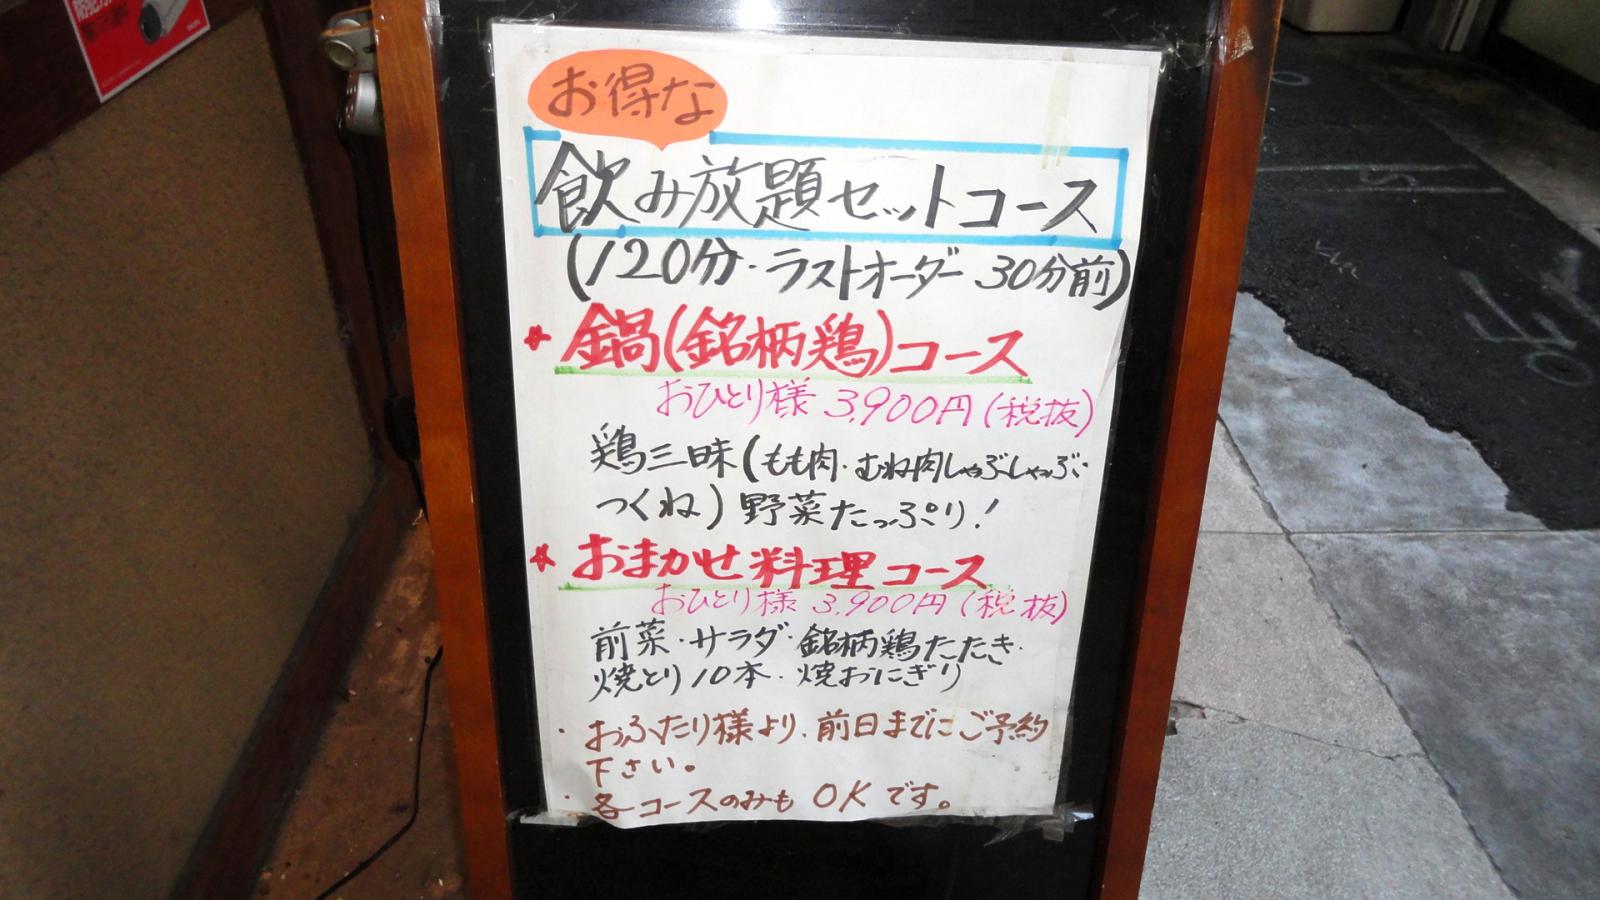 お得な
飲み放題セットコース
(120分・ラストオーダー 30分前)
★ 鍋(銘柄鶏)コース
おひとり様 3,900円(税抜)
鶏三昧(もも肉・むね肉しゃぶしゃぶ・
つくね)野菜たっぷり!
★ おまかせ料理コース
おひとり様 3,900円(税抜)
前菜・サラダ・銘柄鶏たたき・
焼とり10本・焼おにぎり
・おふたり様より、前日までにご予約
下さい。
・各コースのみも OKです。